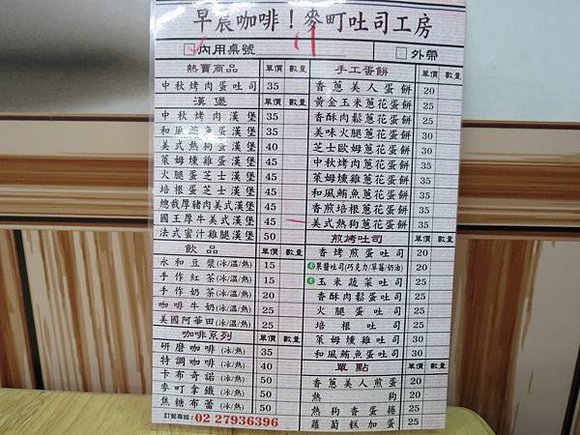 早晨咖啡！麥町吐司工房
內用桌號 11 外帶
熱賣商品 單價 數量
中秋烤肉蛋吐司 35
漢堡 單價 數量
中秋烤肉漢堡 35
和風鮪魚蛋漢堡 35
美式熱狗蛋漢堡 40
萊姆燻雞蛋漢堡 45
火腿蛋芝士漢堡 45
培根蛋芝士漢堡 45
總裁厚豬肉美式漢堡 45
國王厚牛美式漢堡 45
法式蜜汁雞腿漢堡 50
飲品 單價 數量
永和豆漿(冰/溫/熱) 15
手作紅茶(冰/溫/熱) 15
手作奶茶(冰/溫/熱) 20
咖啡牛奶(冰/溫/熱) 25
美國阿華田(冰/溫/熱) 25
咖啡系列 單價 數量
研磨咖啡(冰/熱) 35
特調咖啡(冰/熱) 40
卡布奇諾(冰/熱) 50
麥町拿鐵(冰/熱) 50
焦糖布蕾(冰/熱) 50
訂餐專線/ 02 27936396
手工香餅 單價 數量
香蔥美人蛋餅 20
黃金玉米蔥花蛋餅 25
香酥肉鬆蔥花蛋餅 25
美味火腿蔥花蛋餅 30
芝士歐姆蔥花蛋餅 30
中秋烤肉蔥花蛋餅 35
萊姆燻雞蔥花蛋餅 35
和風鮪魚蔥花蛋餅 35
香煎培根蔥花蛋餅 35
美式熱狗蔥花蛋餅 35
煎烤吐司 單價 數量
香烤煎蛋吐司 20
果醬吐司(巧克力/草莓/奶油) 20
玉米蔬菜吐司 25
香酥肉鬆蛋吐司 25
火腿蛋吐司 25
培根吐司 25
萊姆燻雞蛋吐司 30
和風鮪魚蛋吐司 30
單點 單價 數量
香蔥美人煎蛋 20
熱狗 20
熱狗香蛋捲 25
蘿蔔糕加蛋 25